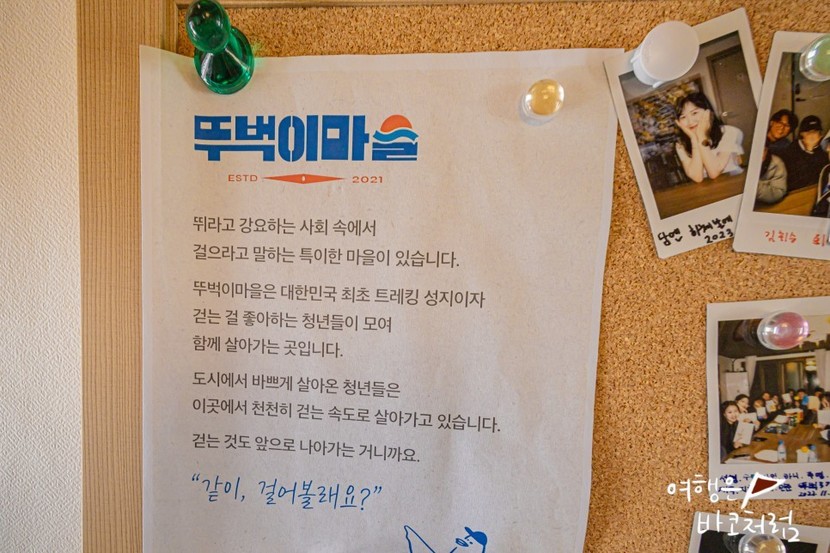 뚜벅이마을
ESTD 2021
뛰라고 강요하는 사회 속에서
걸으라고 말하는 특이한 마을이 있습니다.
뚜벅이마을은 대한민국 최초 트레킹 성지이자
걷는 걸 좋아하는 청년들이 모여
함께 살아가는 곳입니다.
도시에서 바쁘게 살아온 청년들은
이곳에서 천천히 걷는 속도로 살아가고 있습니다.
걷는 것도 앞으로 나아가는 거니까요.
“같이, 걸어볼래요?”
2023
여행은
바코처럼